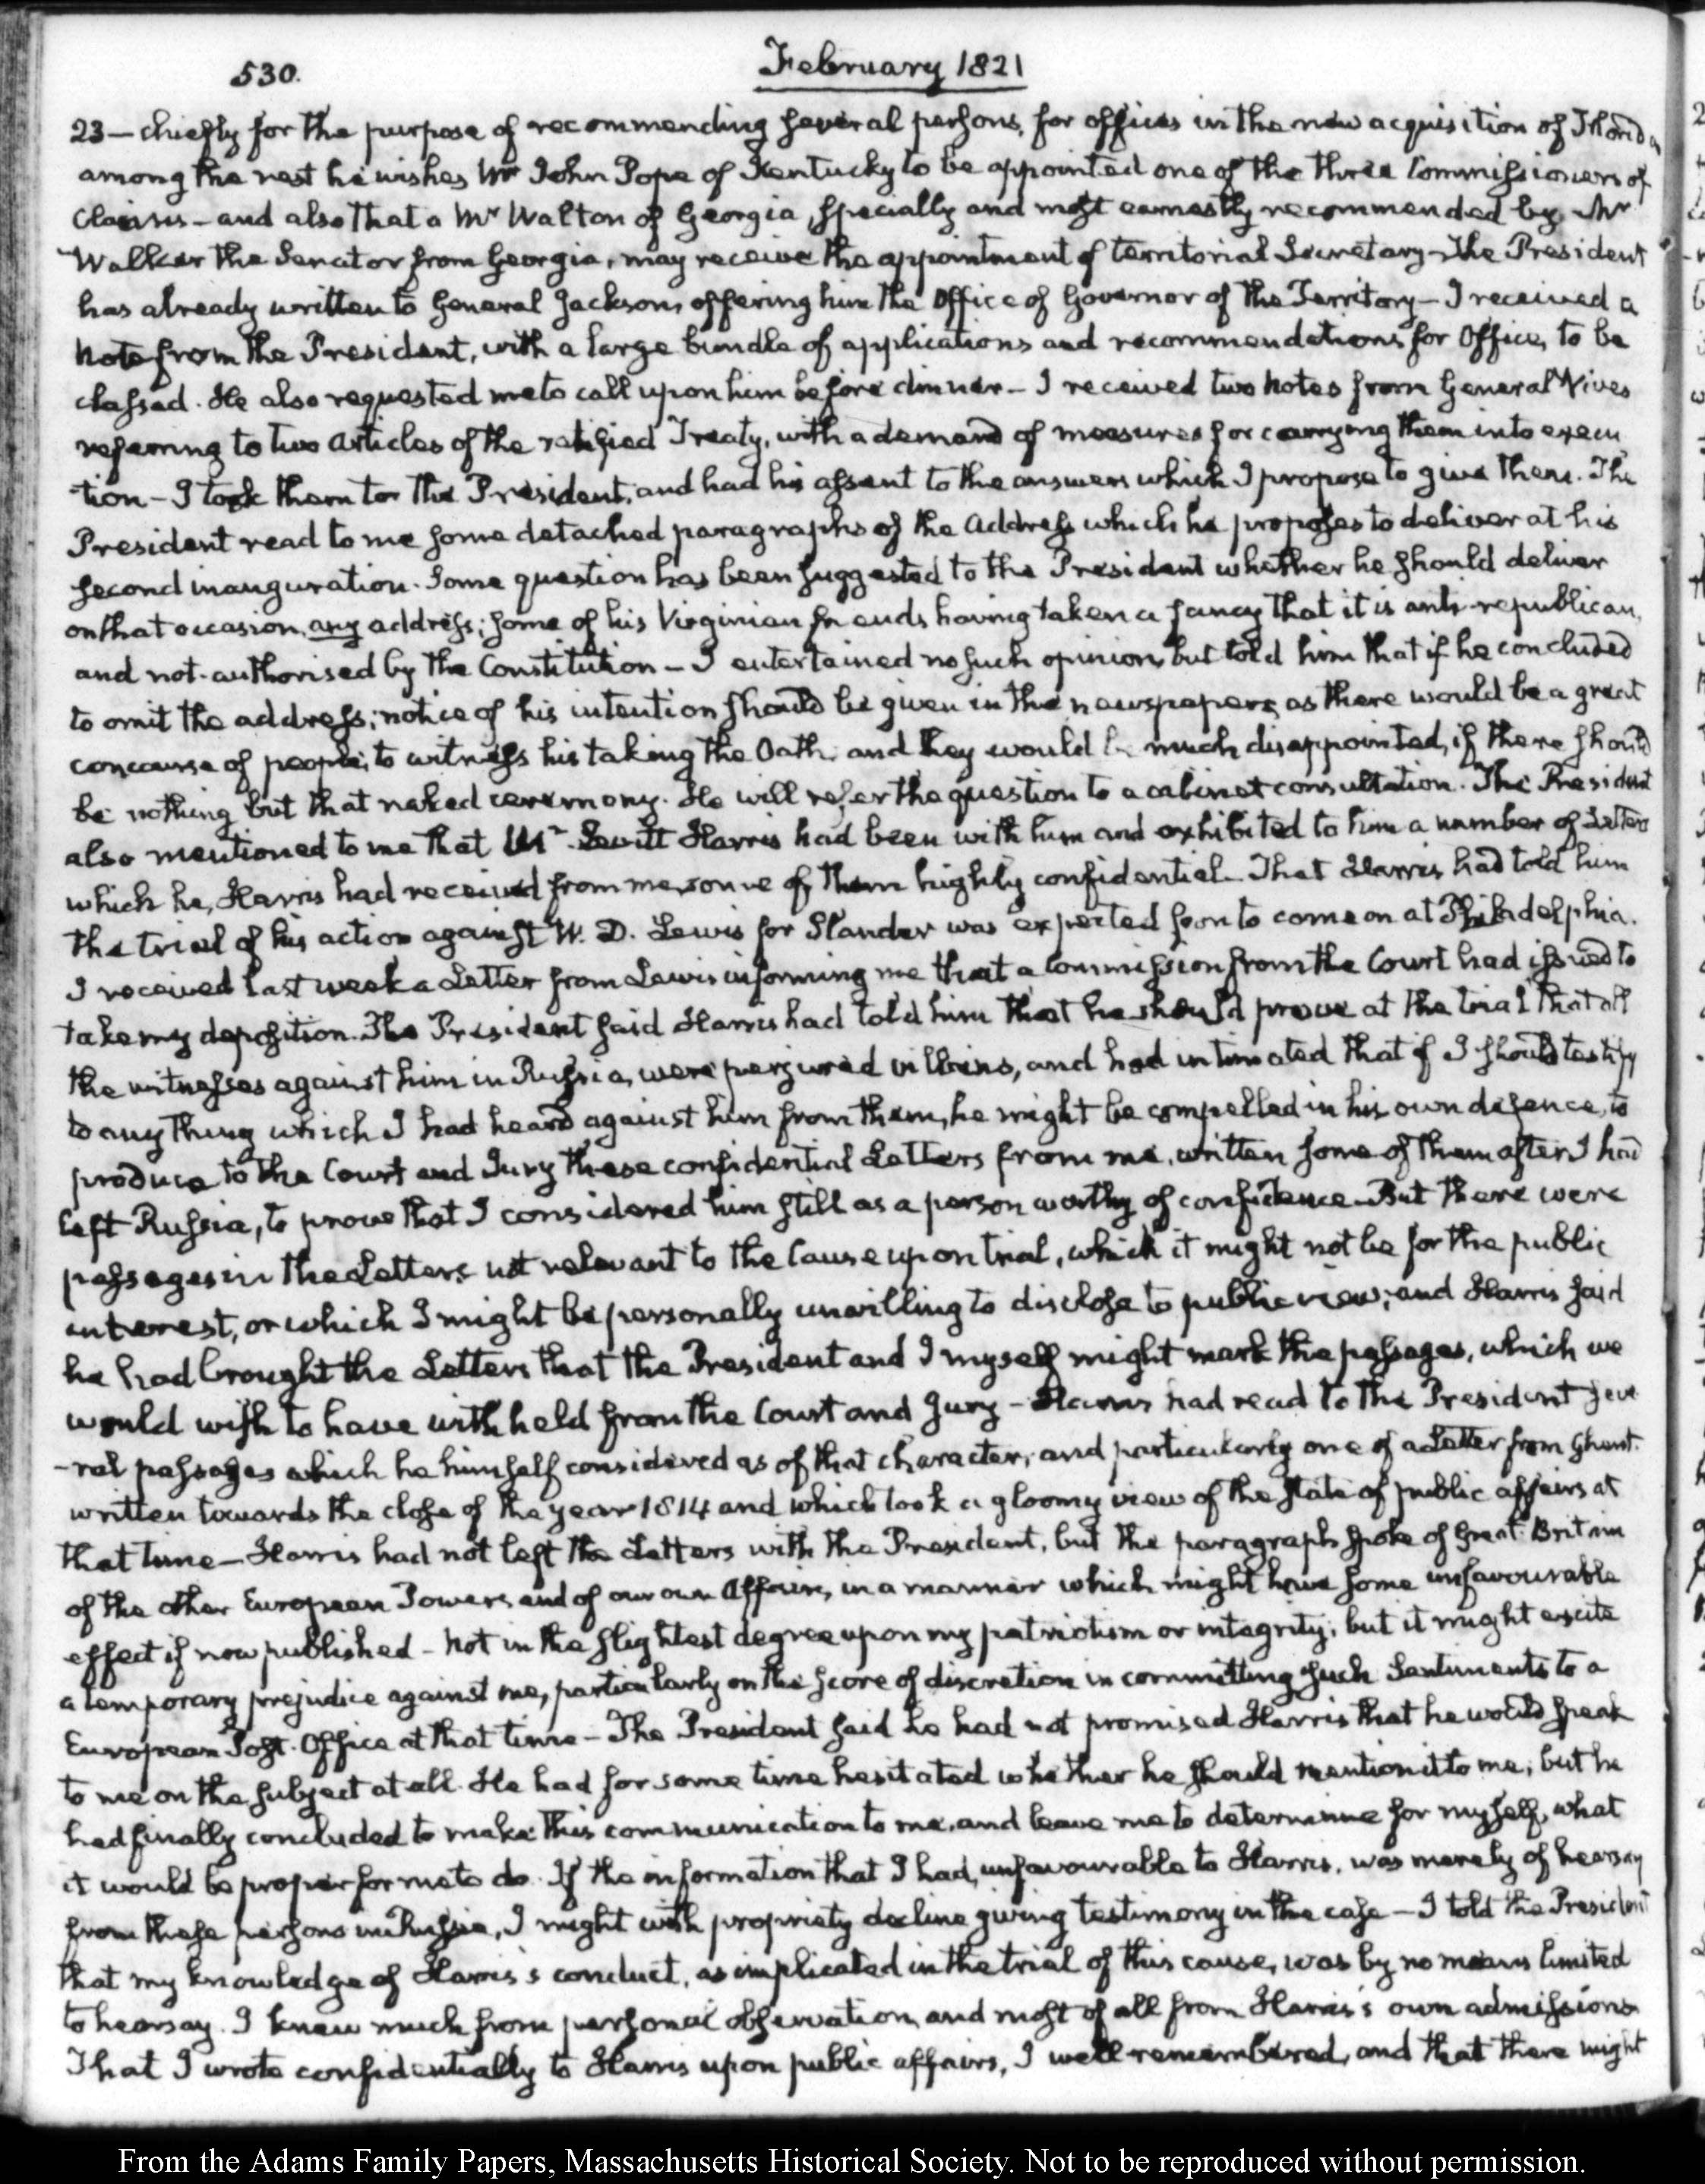 530.
February 1821
23 — chiefly for the purpose of recommending several persons, for offices in the new acquisition of Florida
among the rest he wishes Mr John Pope of Kentucky to be appointed one of the three Commissioners of
Claims — and also that a Mr Walton of Georgia, specially and most earnestly recommended by Mr
Walker the Senator from Georgia, may receive the appointment of territorial Secretary — The President
has already written to General Jackson, offering him the Office of Governor of the Territory — I received a
note from the President, with a large bundle of applications and recommendations for Office, to be
classed. He also requested me to call upon him before dinner — I received two notes from General Vives
referring to two Articles of the ratified Treaty, with a demand of measures for carrying them into execu
-tion — I took them to the President, and had his assent to the answers which I propose to give them. The
President read to me some detached paragraphs of the Address which he proposes to deliver at his
second inauguration. Some question has been suggested to the President whether he should deliver
on that occasion any address; some of his Virginian friends having taken a fancy that it is anti-republican,
and not authorised by the Constitution — I entertained no such opinion, but told him that if he concluded
to omit the address; notice of his intention should be given in the newspapers, as there would be a great
concourse of people, to witness his taking the Oath, and they would be much disappointed, if there should
be nothing but that naked ceremony. He will refer the question to a cabinet consultation. The President
also mentioned to me that Mr Levitt Harris had been with him and exhibited to him a number of Letters
which he, Harris had received from me, some of them highly confidential. That Harris had told him
the trial of his action against W. D. Lewis for Slander was expected soon to come on at Philadelphia.
I received last week a Letter from Lewis informing me that a Commission from the Court had issued to
take my deposition. The President said Harris had told him that he should prove at the trial that all
the witnesses against him in Russia, were perjured villains, and had intimated that if I should testify
to any thing which I had heard against him from them, he might be compelled in his own defence, to
produce to the Court and Jury these confidential Letters from me, written some of them after I had
left Russia, to prove that I considered him still as a person worthy of confidence. But there were
passages in the Letters not relevant to the Cause upon trial, which it might not be for the public
interest, or which I might be personally unwilling to disclose to public view; and Harris said
he had brought the Letters that the President and I myself might mark the passages, which we
would wish to have withheld from the Court and Jury — Harris had read to the President seve
-ral passages which he himself considered as of that character; and particularly one of a Letter from Ghent.
written towards the close of the year 1814 and which took a gloomy view of the state of public affairs at
that time — Harris had not left the Letters with the President, but the paragraph spoke of Great Britain
of the other European Powers, and of our own Affairs, in a manner which might have some unfavourable
effect if now published — not in the slightest degree upon my patriotism or integrity; but it might excite
a temporary prejudice against me, particularly on the score of discretion in committing such Sentiments to a
European Post-Office at that time — The President said he had not promised Harris that he would speak
to me on the subject at all. He had for some time hesitated whether he should mention it to me; but he
had finally concluded to make this communication to me, and leave me to determine for myself, what
it would be proper for me to do. If the information that I had, unfavourable to Harris, was merely of hearsay
from these persons in Russia, I might with propriety decline giving testimony in the case — I told the President
that my knowledge of Harris's conduct, as implicated in the trial of this cause, was by no means limited
to hearsay. I knew much from personal observation, and most of all from Harris's own admissions
That I wrote confidentially to Harris upon public affairs, I well remembered, and that there might
From the Adams Family Papers, Massachusetts Historical Society. Not to be reproduced without permission.